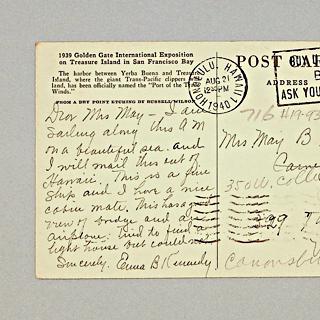 1939 Golden Gate International Exposition
on Treasure Island in San Francisco Bay
The harbor between Yerba Buena and Treasure
Island, where the giant Trans-Pacific clippers
land, has been officially named the "Port of the
Winds."
FROM A DRY POINT ETCHING BY RUSSELL WILSON
Dear Mrs May - I am
Sailing along this A M
on a beautiful sea. and
I will mail this out of
Hawaii. This is a fine
Ship and I have a nice
cabin mate. This has a good
view of bridge and
airplane. Tried to find a
light house but could not
Sincerely, Emma B Kennedy
POST CAR
ADDRESS
ASK YOU
HONOLULU, HAWAII
AUG 21
12 PM
1940
716
Mrs May B
350
29
Canonsb